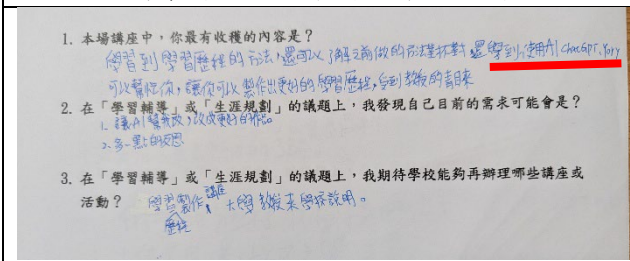 1. 本場講座中，你最有收穫的內容是？
學習到學習歷程的方法，還可以了解之前做的方法對不對，還學到使用AI ChatGPT、
可以幫忙你，讓你可以製作出更好的學習歷程，受到教授的青睞
2. 在「學習輔導」或「生涯規劃」的議題上，我發現自己目前的需求可能會是？
1. 讓AI幫我改，改成更好的作品。
2. 多一點的反思
3. 在「學習輔導」或「生涯規劃」的議題上，我期待學校能夠再辦理哪些講座或
活動？ 學習歷程製作講座，大學教授來學校說明。